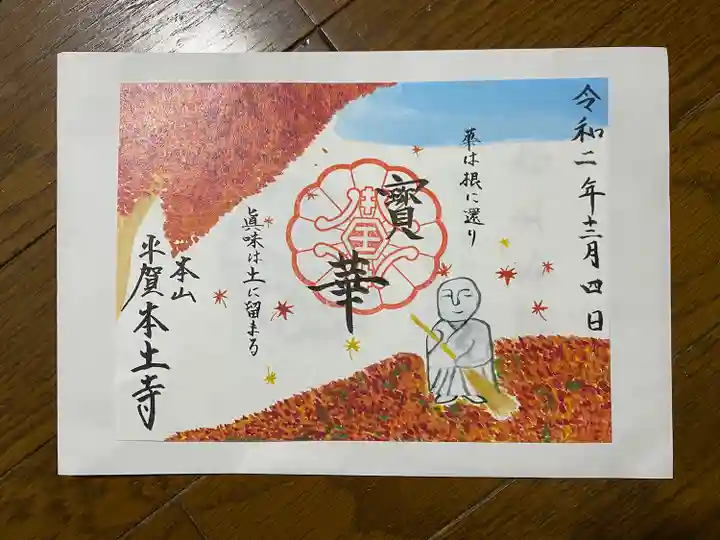 令和二年十二月四日
華は根に還り
寶華
眞味は土に留まる
本山
平賀本土寺